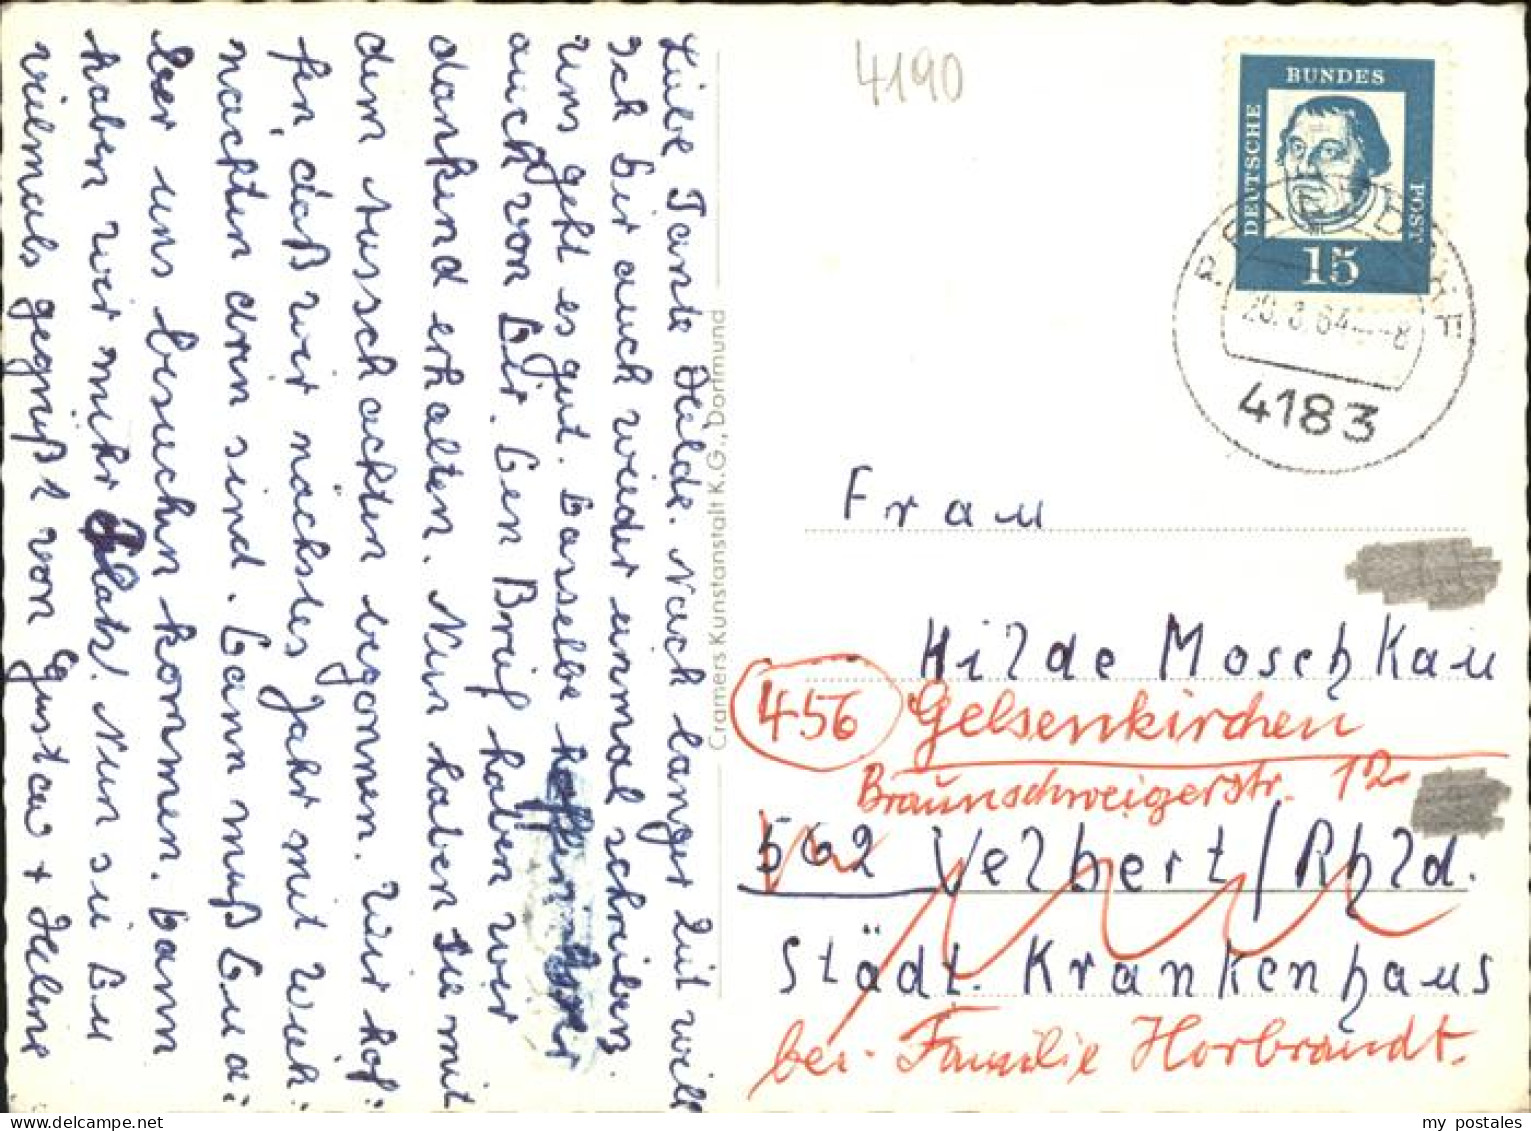 Liebe Tante Hilde. Nach langer Zeit will
Ich Dir auch wieder einmal schreiben.
Uns geht es gut. Dasselbe hoffen wir
auch von Dir. Den Brief haben wir
dankend erhalten. Nun haben Sie mit
dem Ausschachten begonnen. Wir hof-
fen, daß wir nächstes Jahr mit Weih-
nachten drin sind. Dann mußt Du a-
ber uns besuchen kommen. Dann
haben wir mehr Platz. Nun sei Du
vielmals gegrüßt von Gustav + Helene
Cramers Kunstanstalt K.G., Dortmund
4190
DEUTSCHE BUNDES POST
15
20.3.64
4183
Frau
Hilde Moschkau
456 Gelsenkirchen
Braunschweigerstr. 12
562 Velbert/Rhld.
Städt. Krankenhaus
bei Familie Horbrandt.
my postales